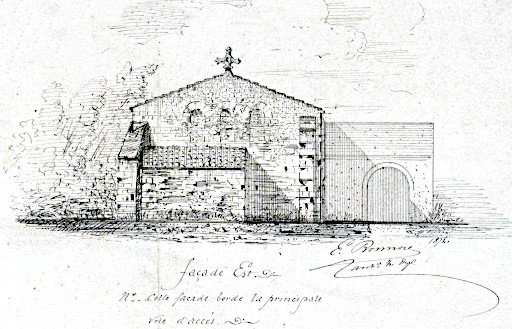 E. Bonnore
façade Est.
Nta. Cette façade borde la principale
voie d'accès.